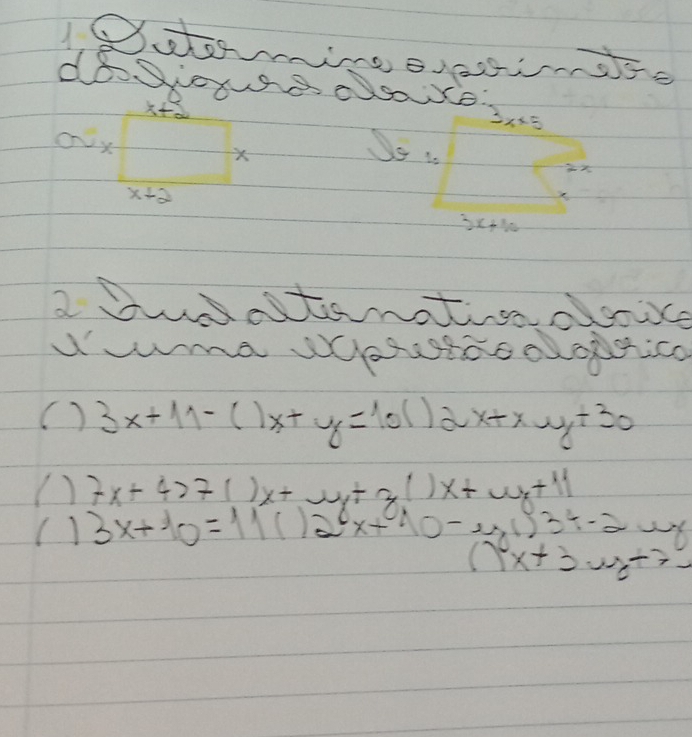 1. Determine o perimetro
das figuras abaixo:
x+2
a- x
x
x+2
3x+5
b- 10
2x
x
3x+10
2- Quais alternativa abaixo
é uma expressão algébrica
( ) 3x+11- ( ) x+y=10 ( ) 2x+xy+30
( ) 7x+4>7 ( ) x+y+z ( ) x+y+11
( ) 3x+10=11 ( ) 2x+10-y ( ) 34-2y
( ) x+3y+7-